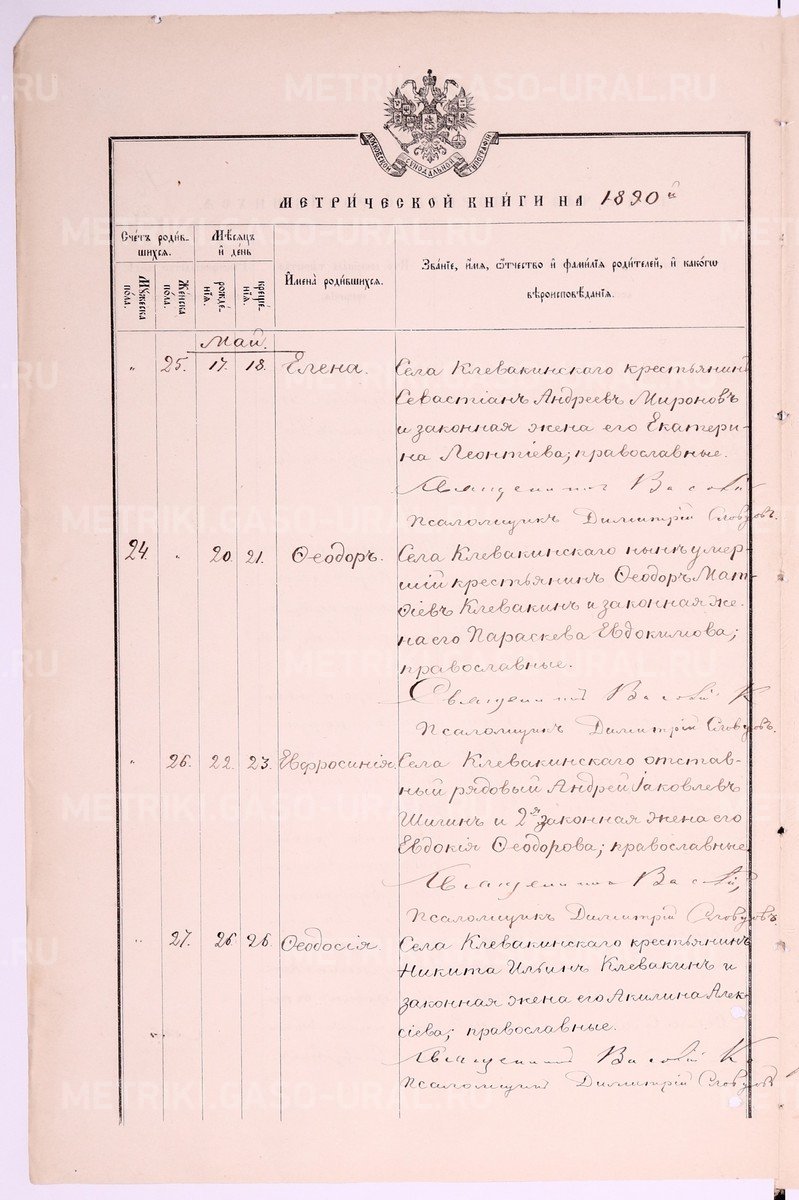 METRIKI.GASO-URAL.RU
МОСКОВСКОЙ СѴНОДАЛЬНОЙ ТИПОГРАФІИ
МЕТРИ́ЧЕСКОЙ КНИ́ГИ НА 1890й
Сче́тъ роди́вшихся.
Мѣ́сяцъ и҆ де́нь
И҆мена̀ роди́вшихся.
Зва́нїе, и҆́мѧ, ѻ҆́тчество и҆ фами́лїѧ роди́телей, и҆ како́гѡ вѣроисповѣ́данїѧ.
Мꙋ́жеска по́ла.
Же́нска по́ла.
рожде́нїѧ.
креще́нїѧ.
Май.
" 25. 17. 18. Елена. Села Клевакинскаго крестьянинъ
Севастіанъ Андреевъ Мироновъ
и законная жена его Екатери-
на Леонтіева; православные.
Священникъ
Псаломщикъ Димитрій
24. " 20. 21. Ѳеодоръ. Села Клевакинскаго нынѣ умер-
шій крестьянинъ Ѳеодоръ Мат-
ѳіевъ Клевакинъ и законная же-
на его Параскева Евдокимова;
православные.
Священникъ
Псаломщикъ Димитрій
" 26. 22. 23. Евфросинія. Села Клевакинскаго отстав-
ный рядовый Андрей Іаковлевъ
Шигинъ и 2я законная жена его
Евдокія Ѳеодорова; православные
Священникъ
Псаломщикъ Димитрій
" 27. 26 26. Ѳеодосія. Села Клевакинскаго крестьянинъ
Никита Ильинъ Клевакинъ и
законная жена его Акилина Алек-
сіева; православные.
Священникъ
Псаломщикъ Димитрій